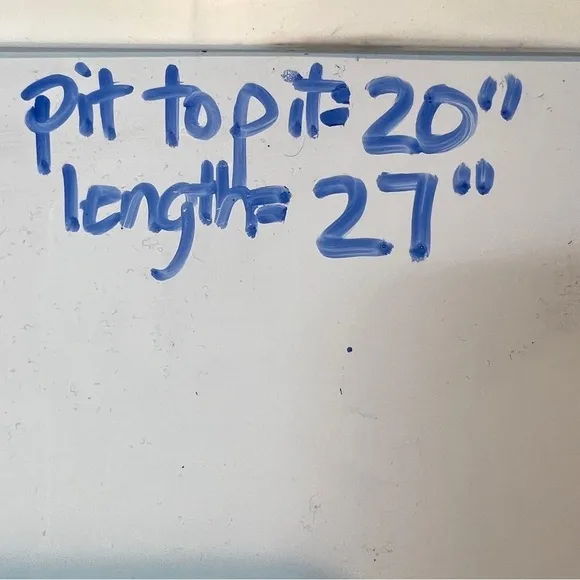 pit to pit= 20"
length= 27"